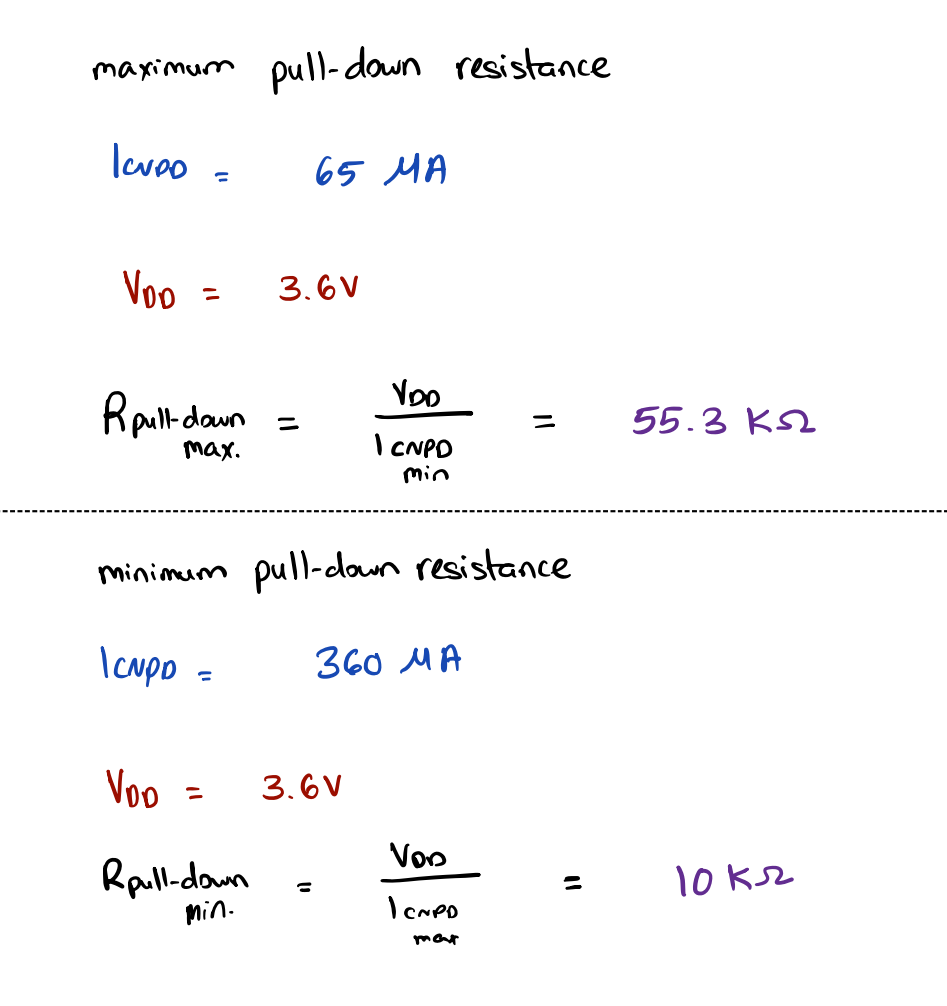 maximum pull-down resistance
ICNPD = 65 μA
VDD = 3.6V
Rpull-down max. = VDD / ICNPD min = 55.3 KΩ
minimum pull-down resistance
ICNPD = 360 μA
VDD = 3.6V
Rpull-down min. = VDD / ICNPD max = 10 KΩ